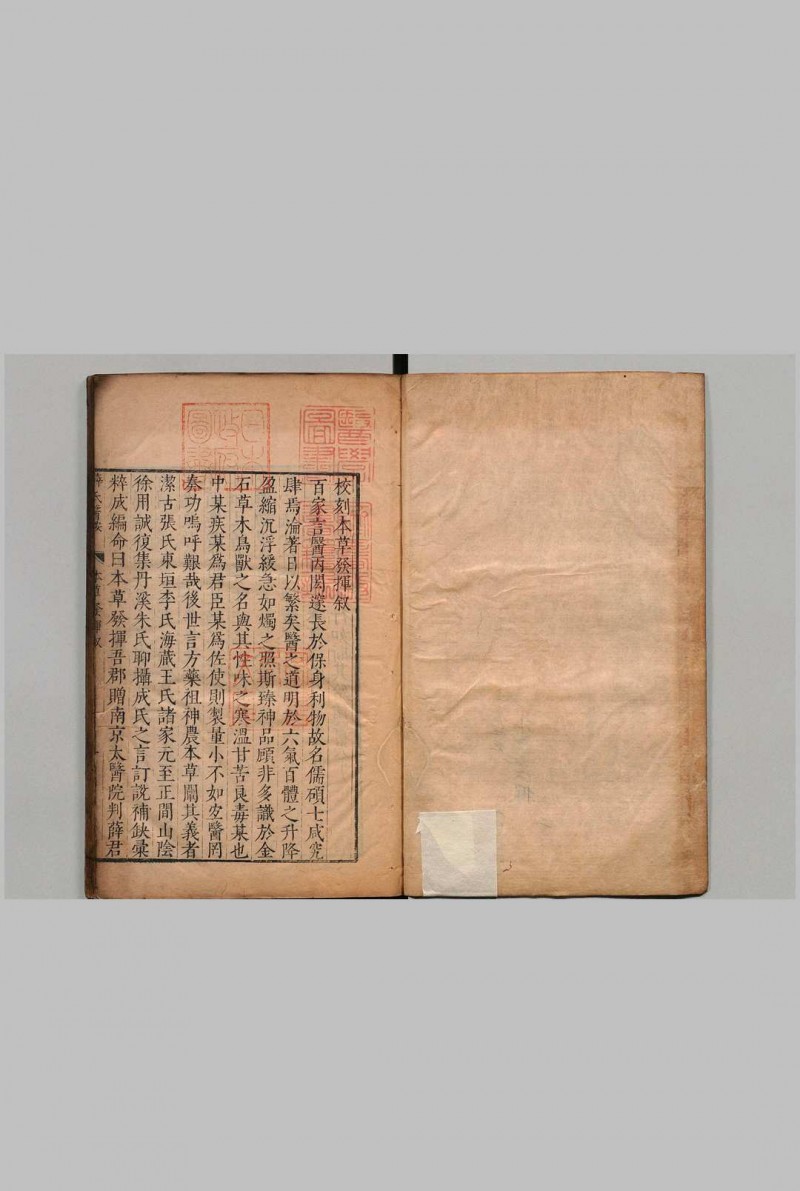 校刻本草發揮叙
百家言醫丙閎邃長於保身利物故名儒碩士咸究
肆焉論著日以繁矣醫之道明於六氣百體之升降
盈縮沉浮緩急如燭之照斯臻神品顧非多識於金
石草木鳥獸之名與其性味之寒溫甘苦良毒某也
中某疾某為君臣某為佐使則製量小不如安醫罔
奏功嗚呼艱哉後世言方藥祖神農本草闡其義者
潔古張氏東垣李氏海藏王氏諸家元至正間山陰
徐用誠復集丹溪朱氏聊攝成氏之言訂說補缺彙
粹成編命曰本草發揮吾郡贈南京太醫院判薛君